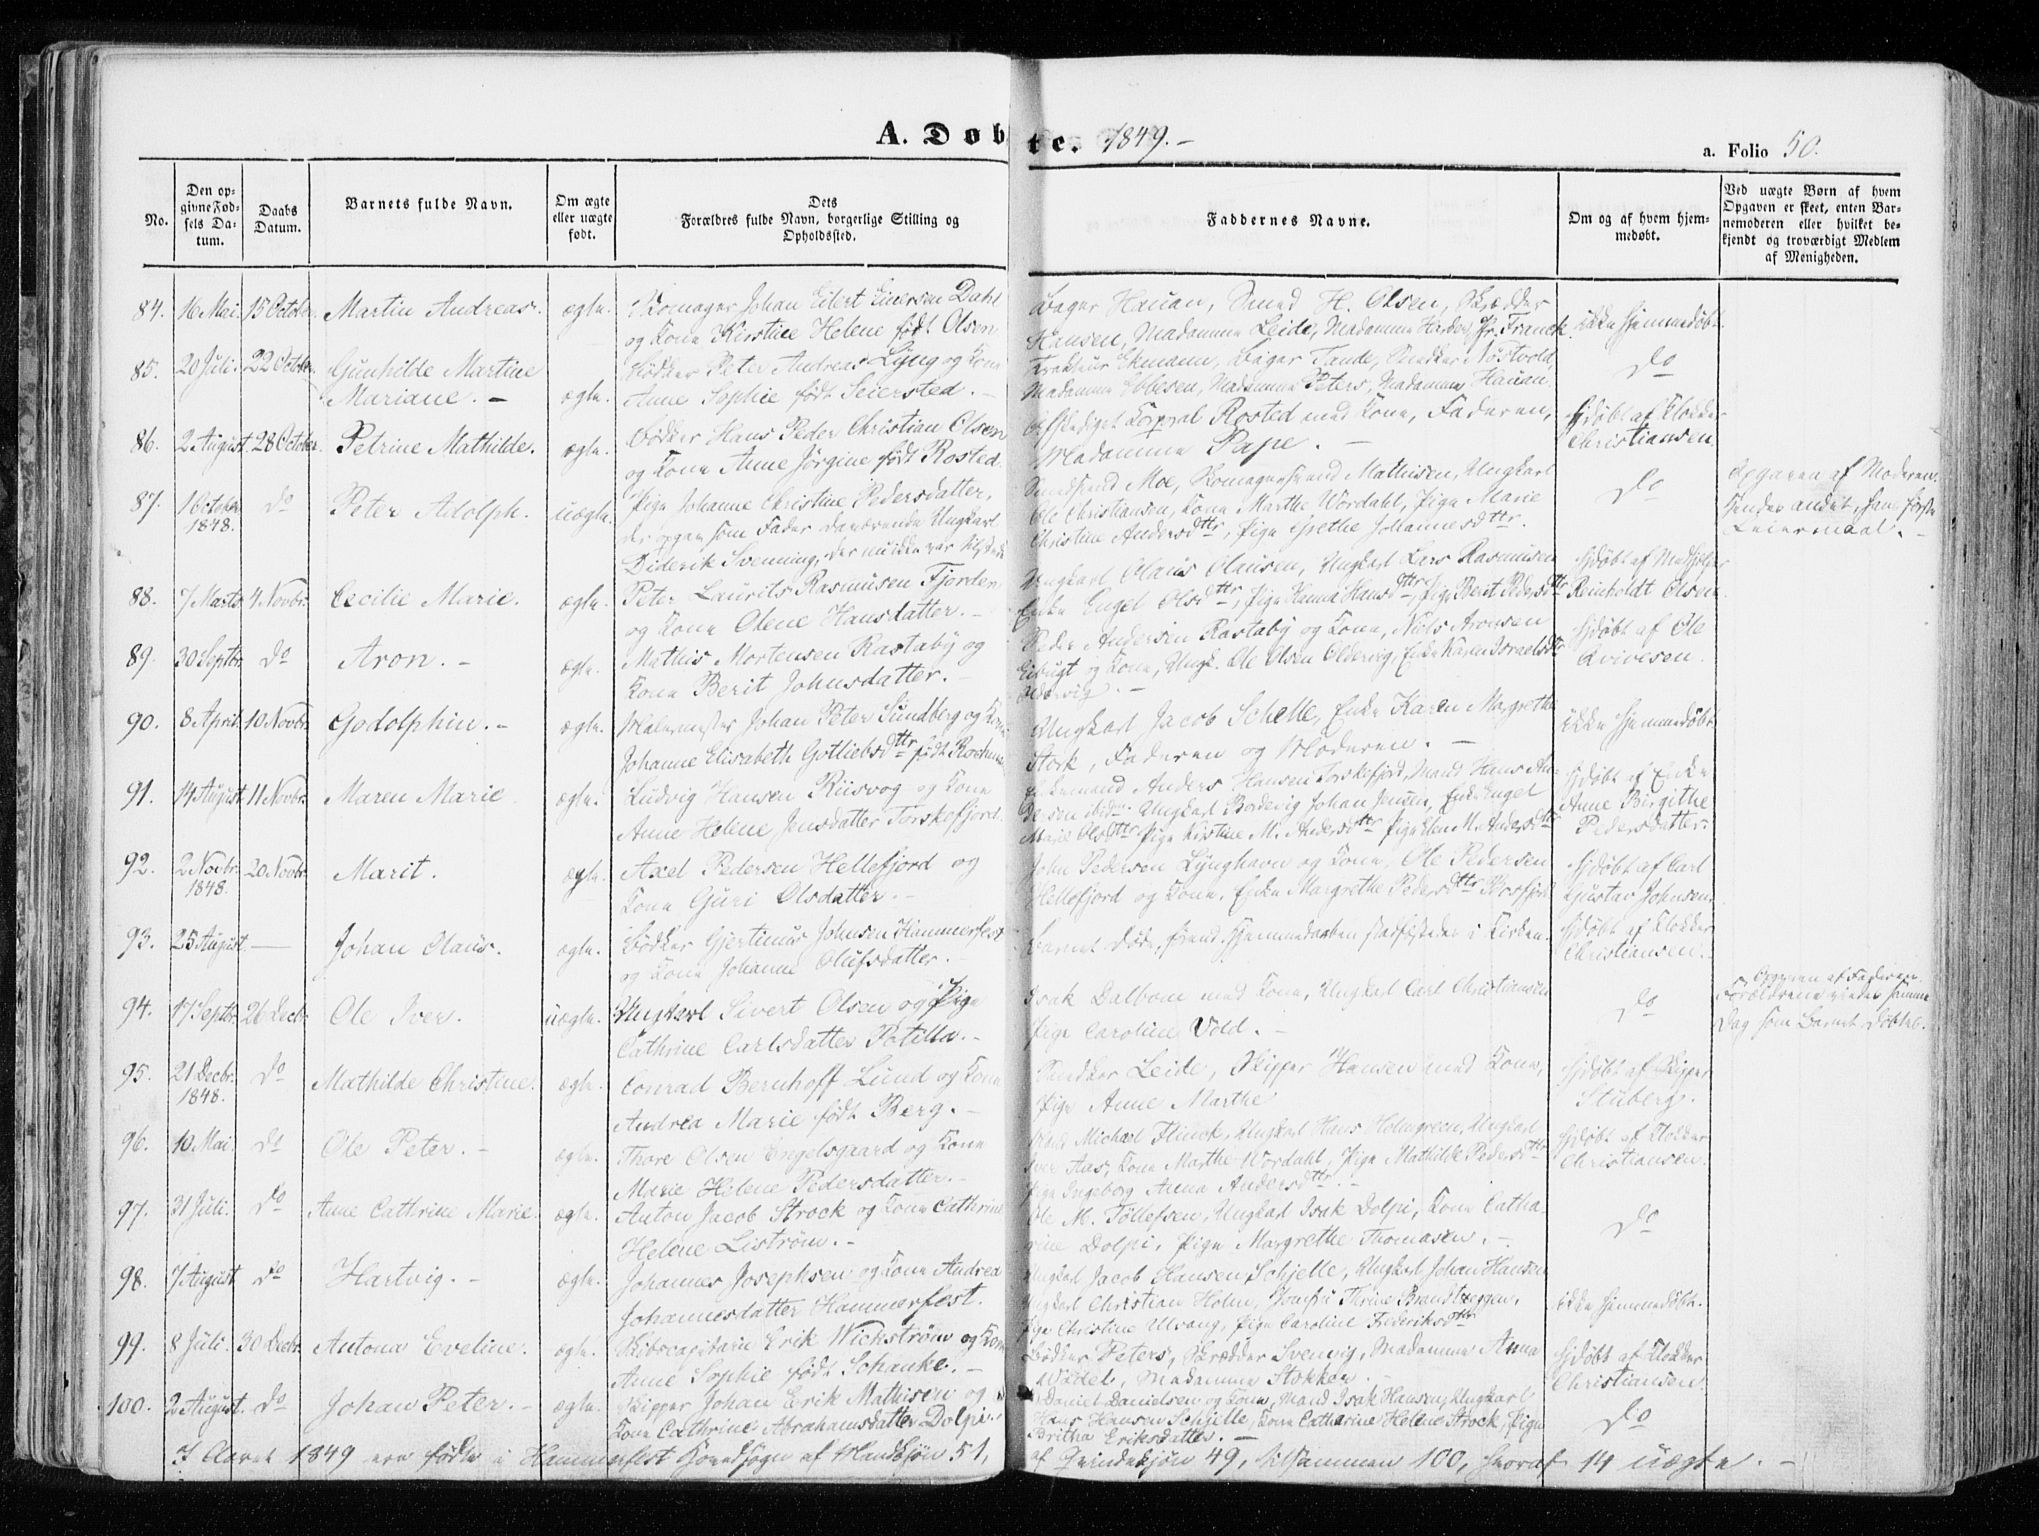 A. Døbte. 1849.-
a. Folio 50.
No.
Den opgivne Fødsels Datum.
Daabs Datum.
Barnets fulde Navn.
Om ægte eller uægte født.
Dets Forældres fulde Navn, borgerlige Stilling og Opholdssted.
Faddernes Navne.
Om og af hvem hjemmedøbt.
Ved uægte Børn af hvem Opgaven er skeet, enten Barnemoderen eller hvilket bekjendt og troværdigt Medlem af Menigheden.
84. 16 Mai. 15 October. Martin Andreas. ægte. Skomager Johan Eilert Einersen Dahl
og Kone Kirstine Helene født Olsen
Bager Hauan, Smed H. Olsen, Skrædder
Hansen, Madamme Leide, Madamme Harder, Jfr. Franck.
ikke hjemmedøbt.
85. 20 Juli. 22 October Gunhilde Martine
Mariane. - ægte. Bødker Peter Andreas Lyng og Kone
Anne Sophie født Seiersted. -
Ekmann, Bager Tande, Snedker Nøstvold,
Madamme Ebbesen, Madamme Peters, Madamme Hauan.
do
86. 2 August 28 October Petrine Mathilde. ægte. Bødker Hans Peder Christian Olsen
og Kone Anne Jørgine født Rosted.
Afskediget Korporal Rosted med Kone, Faderen,
Madamme Pape. -
hjdøbt af Klokker
Christiansen.
87. 1 October
1848. do Peter Adolph. uægte. Pige Johanne Christine Pedersdatter,
der opgav som Fader værende Ungkarl
Diderik Svenning, der nu ikke var tilstede
Smedsvend Moe, Skomagersvend Mathisen, Ungkarl
Ole Christiansen, Kone Marthe Wordahl, Pige Marie
Christine Andersdttr, Pige Grethe Johannesdttr.
do
Opgaven af Moderen.
hendes andet, hans første
Leiermaal. -
88. 7 Marts 4 Novbr. Cecilie Marie. ægte. Peter Laurits Rasmusen Fjorden
og Kone Olene Hansdatter. -
Ungkarl Olaus Olausen, Ungkarl Lars Rasmusen
Enke Engel Olsdttr, Pige Hanna Hansdttr, Pige Berit Pedersdttr
Reinholdt Olsen.
89. 30 Septbr. do Aron. - ægte. Mathis Mortensen Rastaby og
Kone Berit Johnsdatter. -
Peder Andersen Rastaby og Kone, Niels Aronsen
Eibugt og Kone, Ungk. Ole Olsen Oldervig, Enke Karen Israelsdttr
Oldervig. -
hjdøbt af Ole
Qvivesen.
90. 8 April. 10 Novbr. Godolphin. - ægte. Malermester Johan Peter Sundberg og Kone
Johanne Elisabeth Gotliebsdttr født
Ungkarl Jacob Schelle, Enke Karen Margrethe
Stork, Faderen og Moderen. -
ikke hjemmedøbt.
91. 14 August 11 Novbr. Maren Marie ægte. Ludvig Hansen Riisvog og Kone
Anne Helene Jensdatter Torskefjord.
Enkemand Anders Hansen Torskefjord, Mand Hans Andersen
ibid. Ungkarl Bodevig Johan Jensen, Enke Engel
Marie Olsdttr, Pige Kirstine M. Andersdttr, Pige Elen M. Andersdttr
hjdøbt af Enke
Anne Birgithe
Pedersdatter.
92. 2 Novbr.
1848. 20 Novbr. Marit. ægte. Axel Pedersen Hellefjord og
Kone Guri Olsdatter. -
John Pedersen Lynghavn og Kone, Ole Pedersen
Hellefjord og Kone, Enke Margrethe Pedersdttr
hjdøbt af Carl
Gustav Johnsen.
93. 25 August. - Johan Olaus. ægte. Bødker Gjertinius Johnsen Hammerfest
og Kone Johanne Olufsdatter. -
Barnet døde, førend Hjemmedaaben stadfæstedes i Kirken.
hjdøbt af Klokker
Christiansen.
94. 17 Septbr. 26 Decbr. Ole Iver. uægte. Ungkarl Sivert Olsen og Pige
Cathrine Carlsdatter Potilla. -
Isak Dalbom med Kone, Ungkarl Carl Christiansen
Pige Caroline Vold. -
do
Opgaven af Faderen.
Forældrene viedes samme
Dag som Barnet døbtes.
95. 21 Decbr.
1848. do Mathilde Christine. ægte. Conrad Bernhoff Lund og Kone
Andrea Marie født Berg. -
Snedker Leide, Skipper Hansen med Kone,
Pige Anne Marthe
hjdøbt af Skipper
Stuberg.
96. 10 Mai. do Ole Peter. - ægte. Thore Olsen Engelsgaard og Kone
Marie Helene Pedersdatter. -
Michael Flinck, Ungkarl Hans Holmgreen, Ungkarl
Iver Aas, Kone Marthe Wordahl, Pige Mathilde Pedersdttr
Pige Ingeborg Anna Andersdttr. -
hjdøbt af Klokker
Christiansen.
97. 31 Juli. do Anne Cathrine Marie. ægte. Anton Jacob Strock og Kone Cathrine
Helene Liström. -
Ole M. Tollefsen, Ungkarl Isak Dolpi, Kone Catharine
Dolpi, Pige Margrethe Thomasen. -
do
98. 7 August do Hartvig. - ægte. Johannes Josephsen og Kone Andrea
Johannesdatter Hammerfest.
Ungkarl Jacob Hansen Schjelle, Ungkarl Johan Hansen
Ungkarl Christian Holm, Jomfru Thrine Brandtzeggen,
Pige Christine Ulvang, Pige Caroline Frederiksdttr
ikke hjemmedøbt.
99. 8 Juli. 30 Decbr. Antona Eveline. ægte. Skibscapitain Erik Wickström og Kone
Anne Sophie født Schanke. -
Bødker Peters, Skrædder Svenvig, Madamme Anna
Madamme Stokken. -
hjdøbt af Klokker
Christiansen.
100. 2 August. do Johan Peter. - ægte. Skipper Johan Erik Mathisen og
Kone Cathrine Abrahamsdatter Dolpi.
Daniel Danielsen og Kone, Mand Isak Hansen, Ungkarl
Hans Hansen Schjelle, Kone Catharine Helene Strock, Pige
Britha Eriksdatter. -
do
I Aaret 1849 ere fødte i Hammerfest Hovedsogn af Mandkjøn 51, af Qvindekjøn 49, tilsammen 100, hvoraf 14 uægte. -